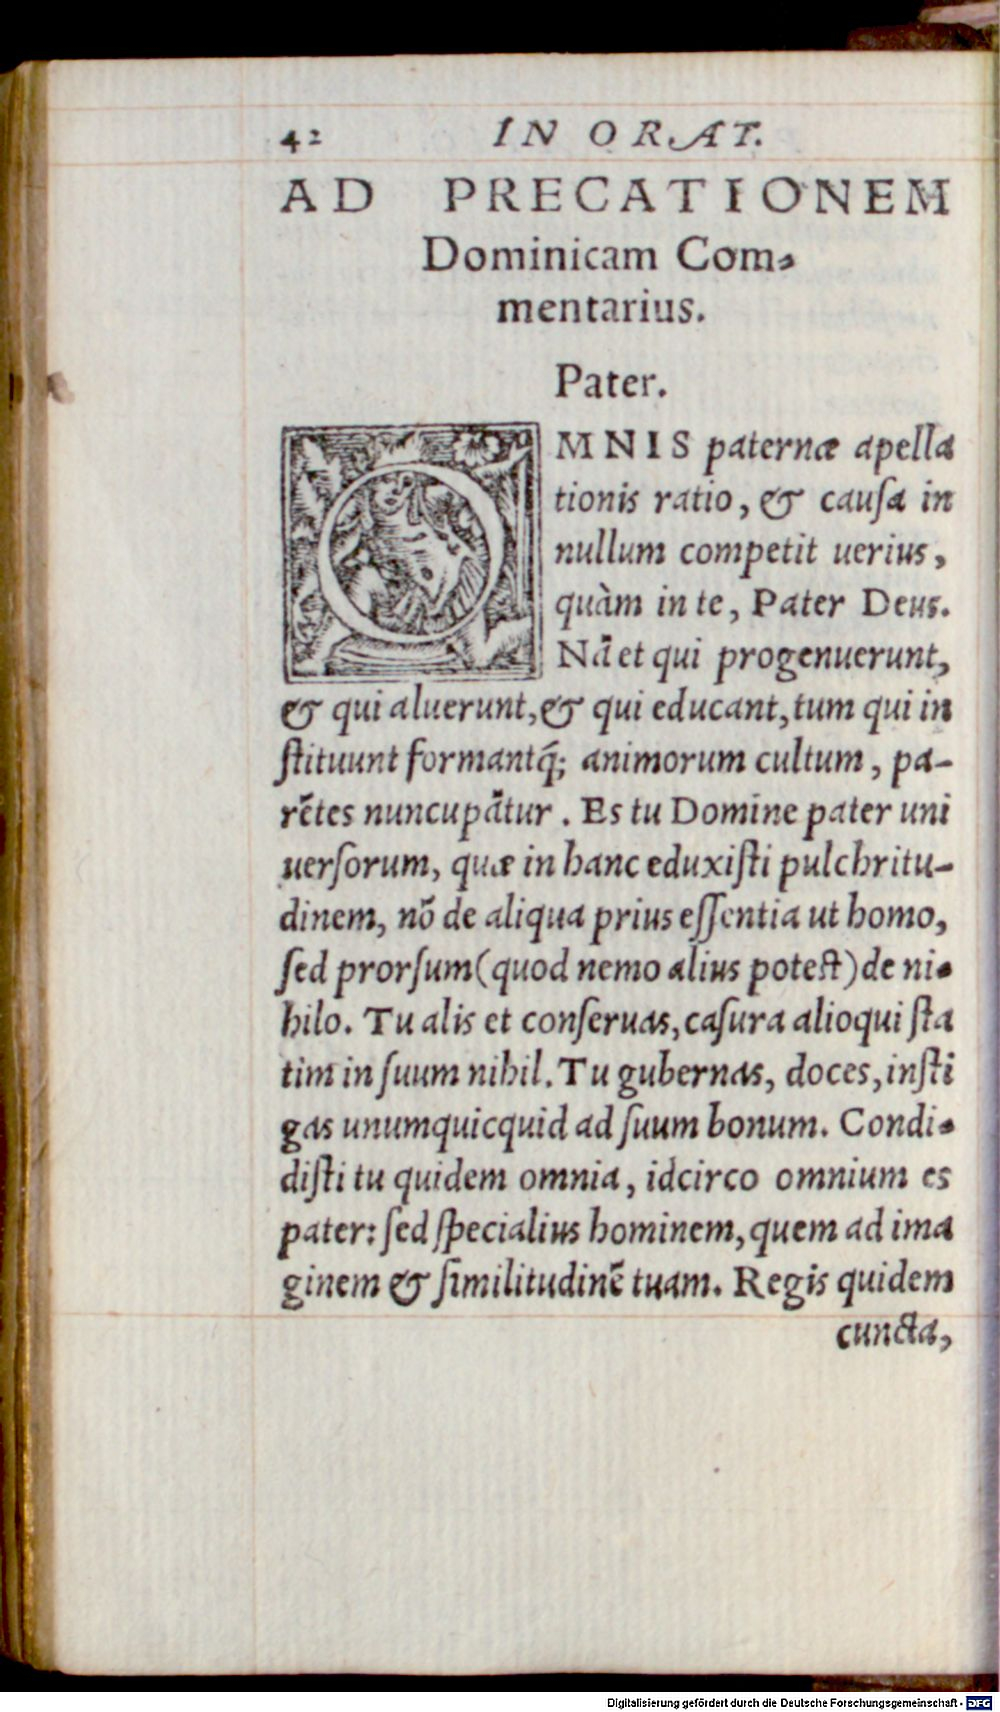 42 IN ORAT.
AD PRECATIONEM
Dominicam Com-
mentarius.
Pater.
OMNIS paternæ apella
tionis ratio, & cauſa in
nullum competit uerius,
quàm in te, Pater Deus.
Nã et qui progenuerunt,
& qui aluerunt, & qui educant, tum qui in
ſtituunt formantq́; animorum cultum, pa-
rẽtes nuncupãtur. Es tu Domine pater uni
uerſorum, quæ in hanc eduxiſti pulchritu-
dinem, nõ de aliqua prius eſſentia ut homo,
ſed prorſum (quod nemo alius poteſt) de ni-
hilo. Tu alis et conſeruas, caſura alioqui ſta
tim in ſuum nihil. Tu gubernas, doces, inſti
gas unumquicquid ad ſuum bonum. Condi-
diſti tu quidem omnia, idcirco omnium es
pater: ſed ſpecialius hominem, quem ad ima
ginem & ſimilitudinẽ tuam. Regis quidem
cuncta,
Digitalisierung gefördert durch die Deutsche Forschungsgemeinschaft - DFG